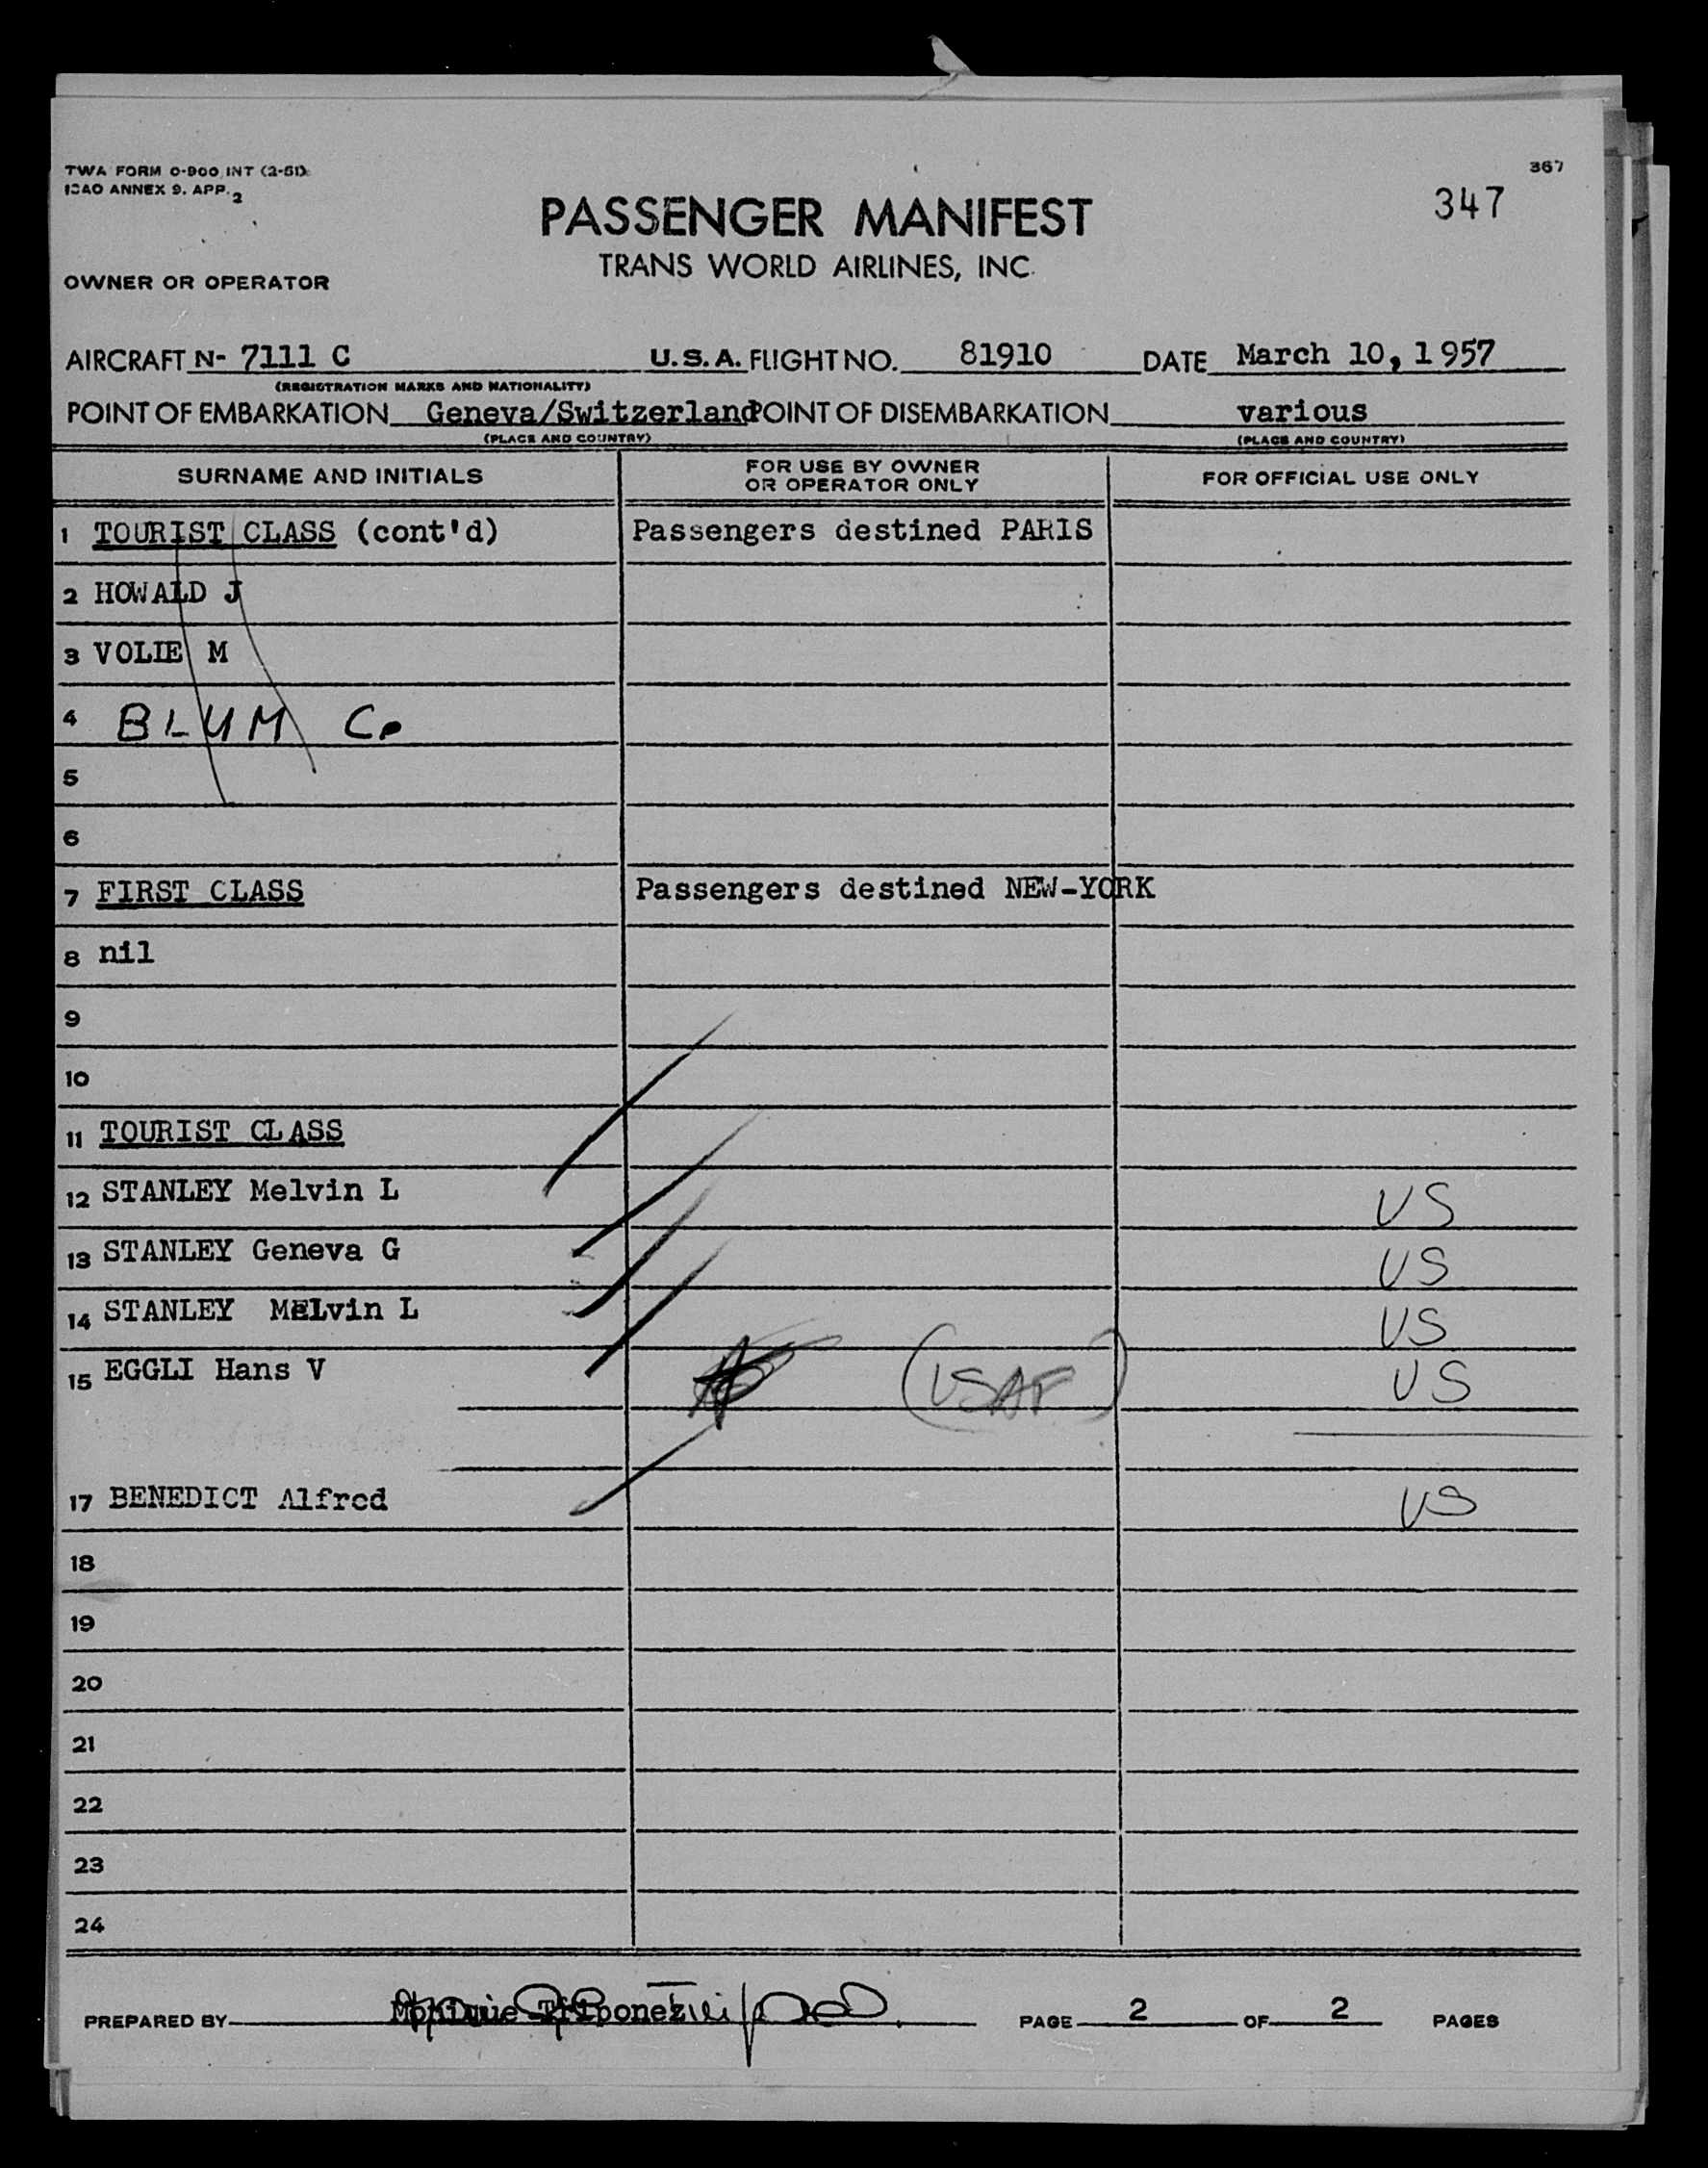 TWA FORM 0-900 INT (2-51)
ICAO ANNEX 9. APP. 2
367
347
PASSENGER MANIFEST
TRANS WORLD AIRLINES, INC.
OWNER OR OPERATOR
AIRCRAFT N- 7111 C U.S.A. FLIGHT NO. 81910 DATE March 10, 1957
(REGISTRATION MARKS AND NATIONALITY)
POINT OF EMBARKATION Geneva/Switzerland POINT OF DISEMBARKATION various
(PLACE AND COUNTRY) (PLACE AND COUNTRY)
SURNAME AND INITIALS FOR USE BY OWNER OR OPERATOR ONLY FOR OFFICIAL USE ONLY
1 TOURIST CLASS (cont'd) Passengers destined PARIS
2 HOWALD J
3 VOLIE M
4 BLUM C.
5
6
7 FIRST CLASS Passengers destined NEW-YORK
8 nil
9
10
11 TOURIST CLASS
12 STANLEY Melvin L US
13 STANLEY Geneva G US
14 STANLEY Melvin L US
15 EGGLI Hans V (USAF) US
17 BENEDICT Alfred US
18
19
20
21
22
23
24
PREPARED BY Monique Triponez PAGE 2 OF 2 PAGES